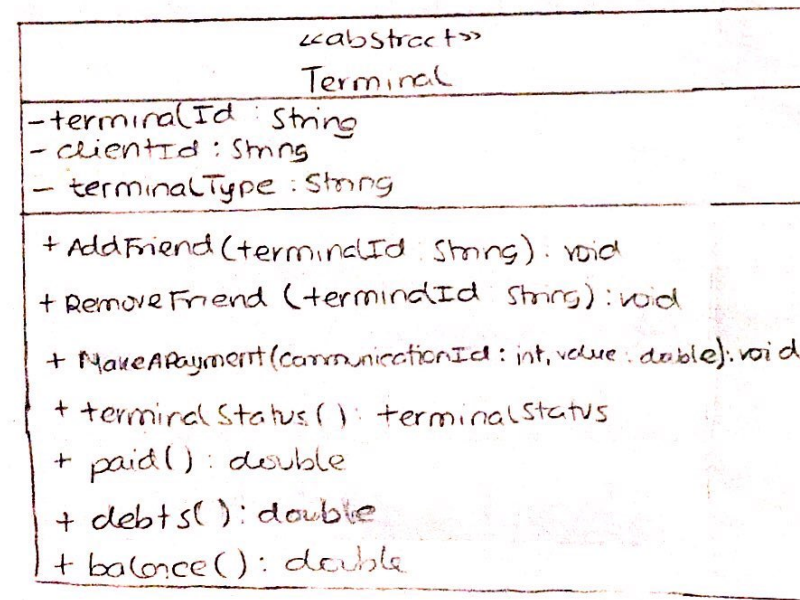 <<abstract>>
Terminal
- terminalId : String
- clientId : String
- terminalType : String
+ AddFriend (terminalId : String) : void
+ RemoveFriend (terminalId : String) : void
+ MakeAPayment (communicationId : int, value : double) : void
+ terminalStatus () : terminalStatus
+ paid() : double
+ debts() : double
+ balance() : double